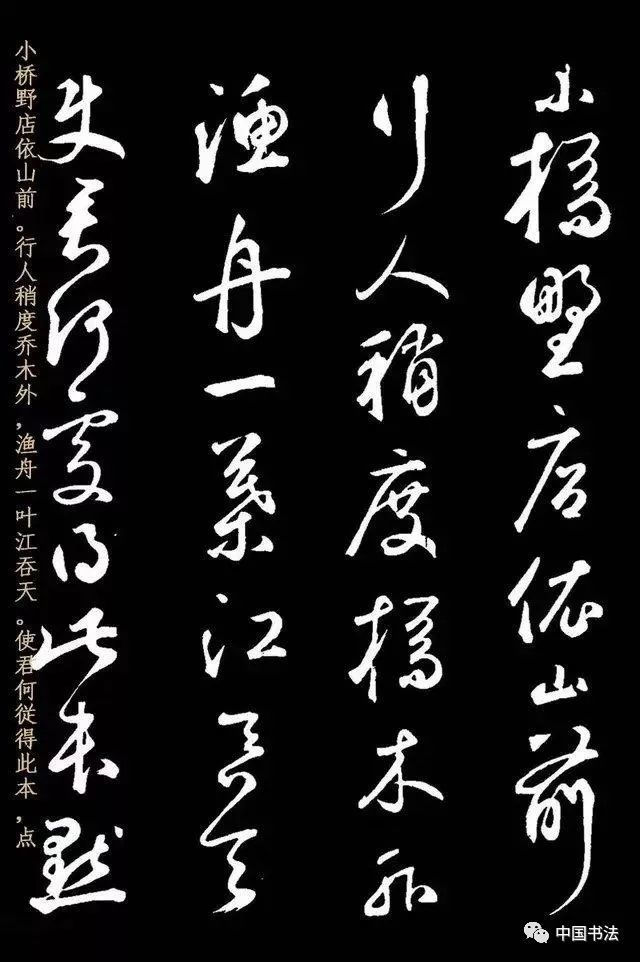 小橋野店依山前
行人稍度橋木外
漁舟一葉江吞天
使君何處得此本點
小桥野店依山前。行人稍度乔木外,渔舟一叶江吞天。使君何従得此本,点
中国书法